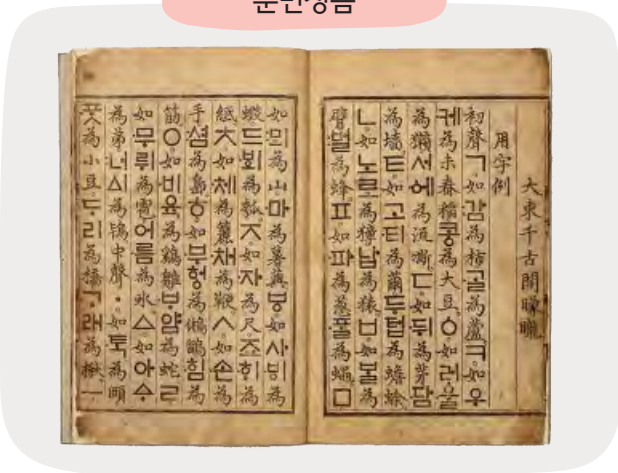 훈민정음
大東千古開矇矓
用字例
初聲ㄱ如감為柿ᄀᆞᆯ為蘆ㅋ如우
케為未舂稻콩為大豆ㆁ如러울
為獺서에為流凘ㄷ如뒤為茅담
為墻ㅌ如고티為繭두텁為蟾蜍
ㄴ如노로為獐납為猿ㅂ如ᄇᆞᆯ為
臂벌為蜂ㅍ如파為葱ᄑᆞᆯ為蠅ㅁ
如뫼為山마為薯藇ㅸ如사ᄫᅵ為
蝦드ᄫᅴ為瓠ㅈ如자為尺죠ᄒᆡ為
紙ㅊ如체為簏채為鞭ㅅ如손為
手셤為島ㅎ如부헝為鵂鶹힘為
筋ㅇ如비육為鷄雛ᄇᆞ얌為蛇ㄹ
如무뤼為雹어름為氷ㅿ如아ᅀᆞ
為弟너ᅀᅵ為鴇中聲ㆍ如ᄐᆞᆨ為頤
ᄑᆞᆺ為小豆ᄃᆞ리為橋ᄀᆞ래為楸ㅡ